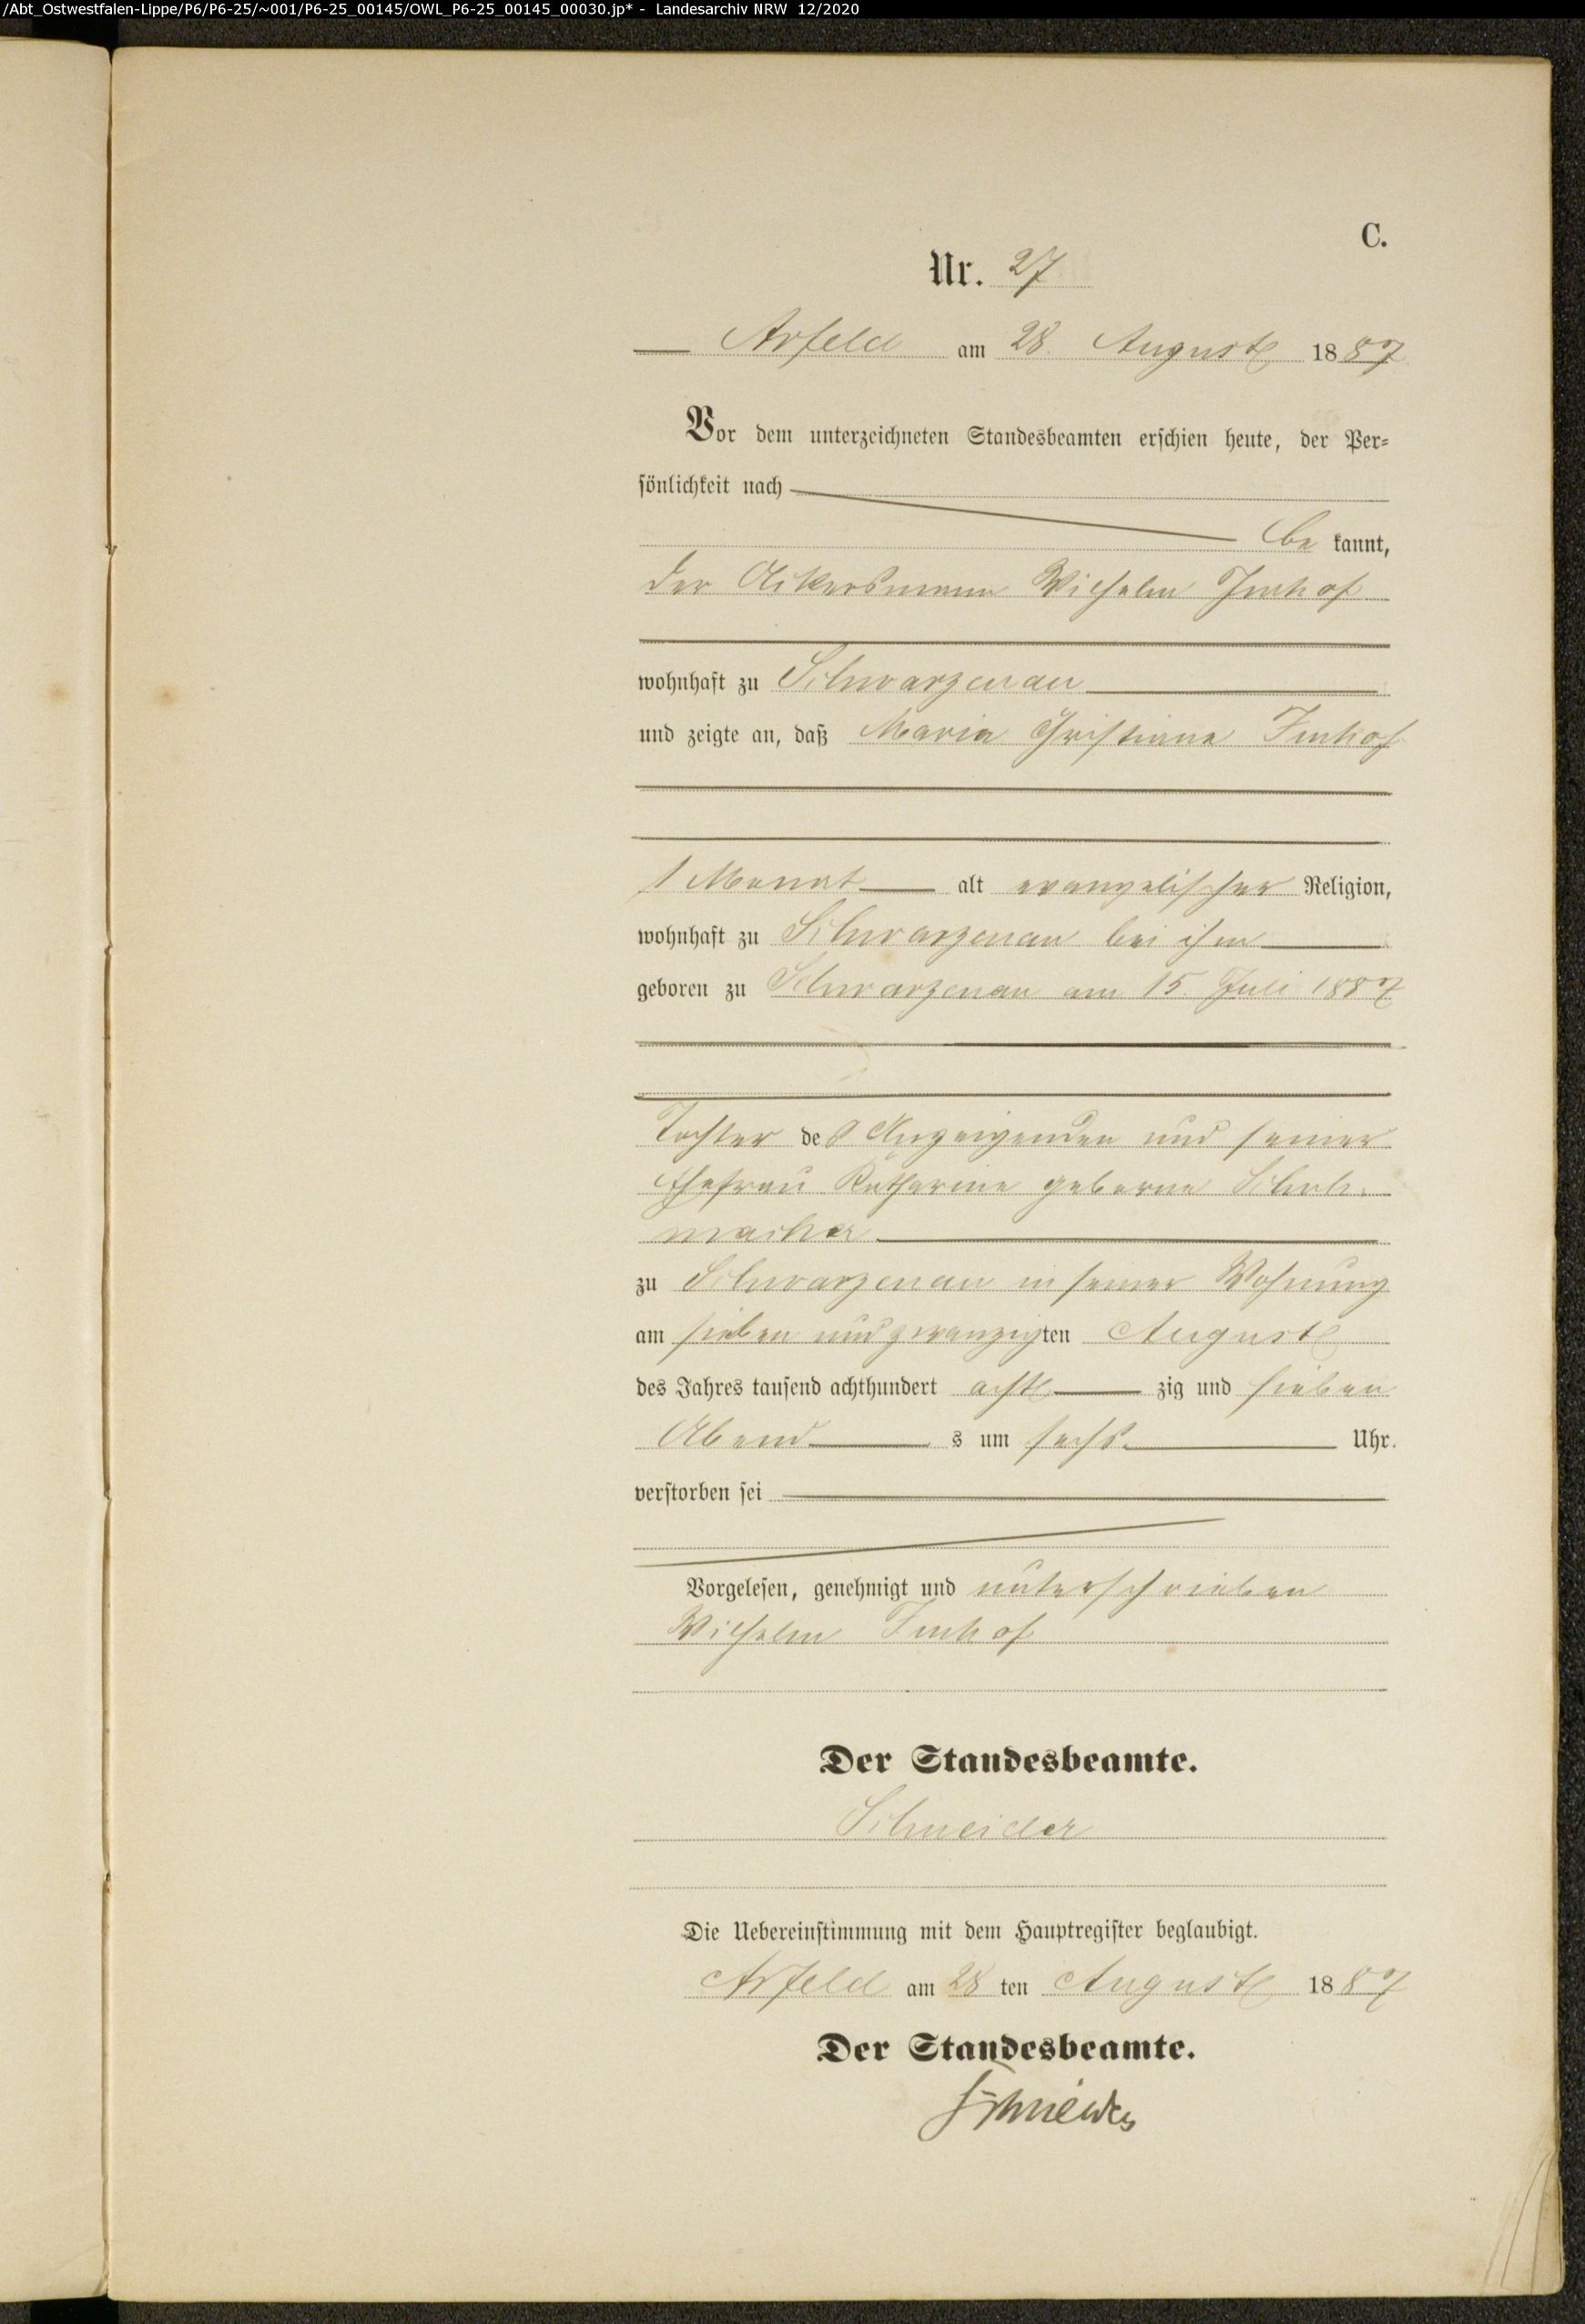 /Abt_Ostwestfalen-Lippe/P6/P6-25/~001/P6-25_00145/OWL_P6-25_00145_00030.jp* - Landesarchiv NRW 12/2020
C.
Nr. 27
Arfeld am 28. August 1887
Vor dem unterzeichneten Standesbeamten erschien heute, der Per-
sönlichkeit nach
be kannt,
der Ackersmann Wilhelm Imhof
wohnhaft zu Schwarzenau
und zeigte an, daß Maria Christiana Imhof
1 Monat alt evangelischer Religion,
wohnhaft zu Schwarzenau bei ihm
geboren zu Schwarzenau am 15. Juli 1887
Tochter des Anzeigenden und seiner
Ehefrau Katharine geborne
macher
zu Schwarzenau in seiner Wohnung
am sieben und zwanzigten August
des Jahres tausend achthundert acht zig und sieben
Abend s um sechs Uhr.
verstorben sei
Vorgelesen, genehmigt und unterschrieben
Wilhelm Imhof
Der Standesbeamte.
Schneider
Die Uebereinstimmung mit dem Hauptregister beglaubigt.
Arfeld am 28 ten August 1887
Der Standesbeamte.
Schneider